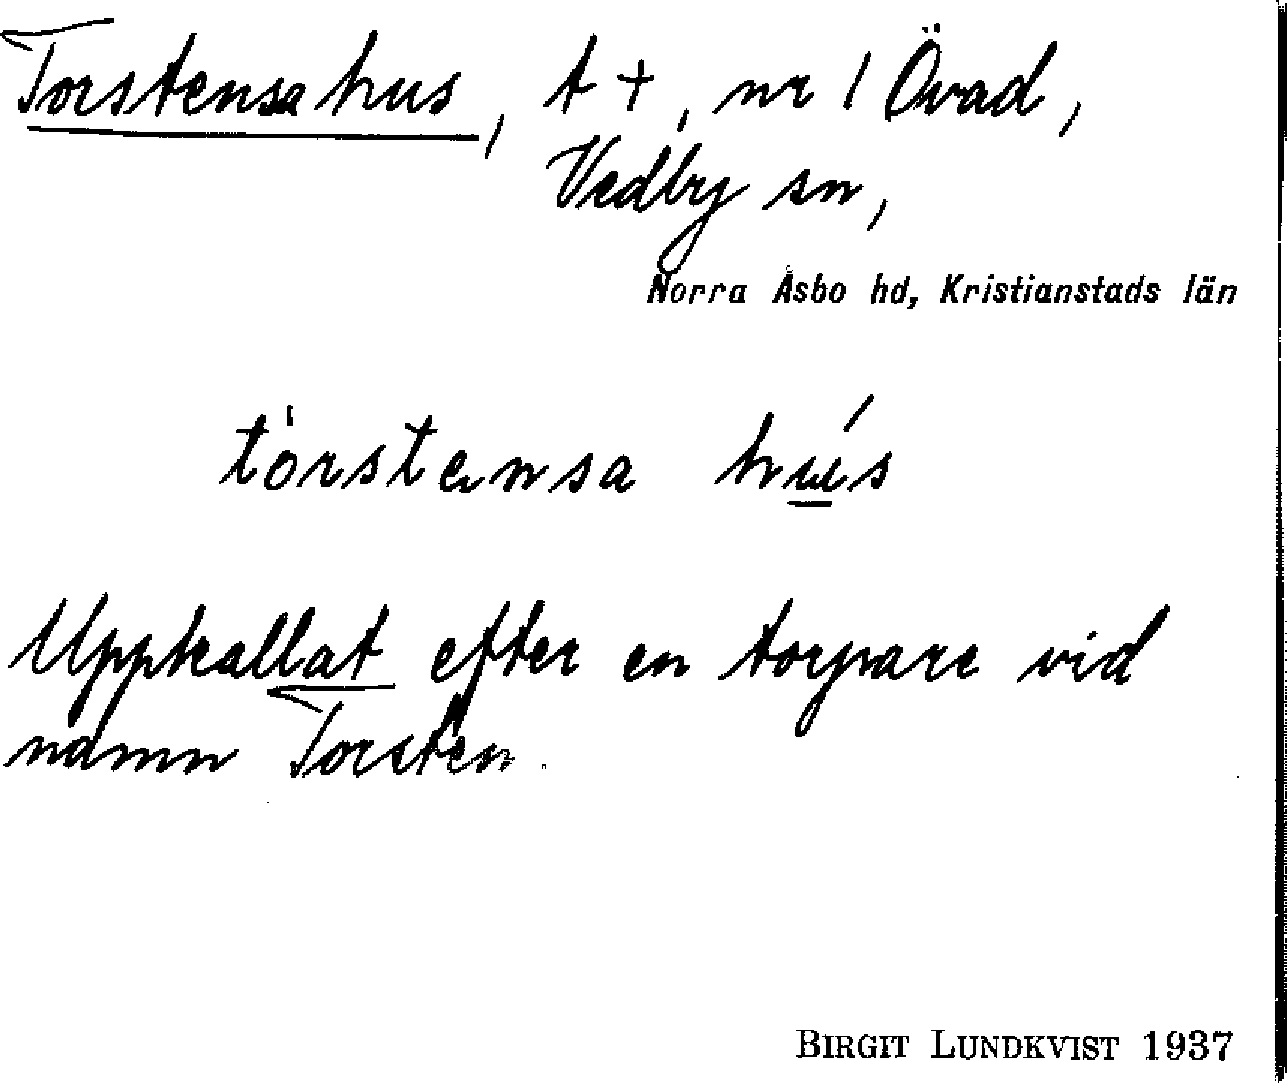 Torstensa hus, t +, nr 1 Övad,
Vedby sn,
Norra Åsbo hd, Kristianstads län
torstensa hus
Uppkallat efter en torpare vid
namn Torsten.
BIRGIT LUNDKVIST 1937